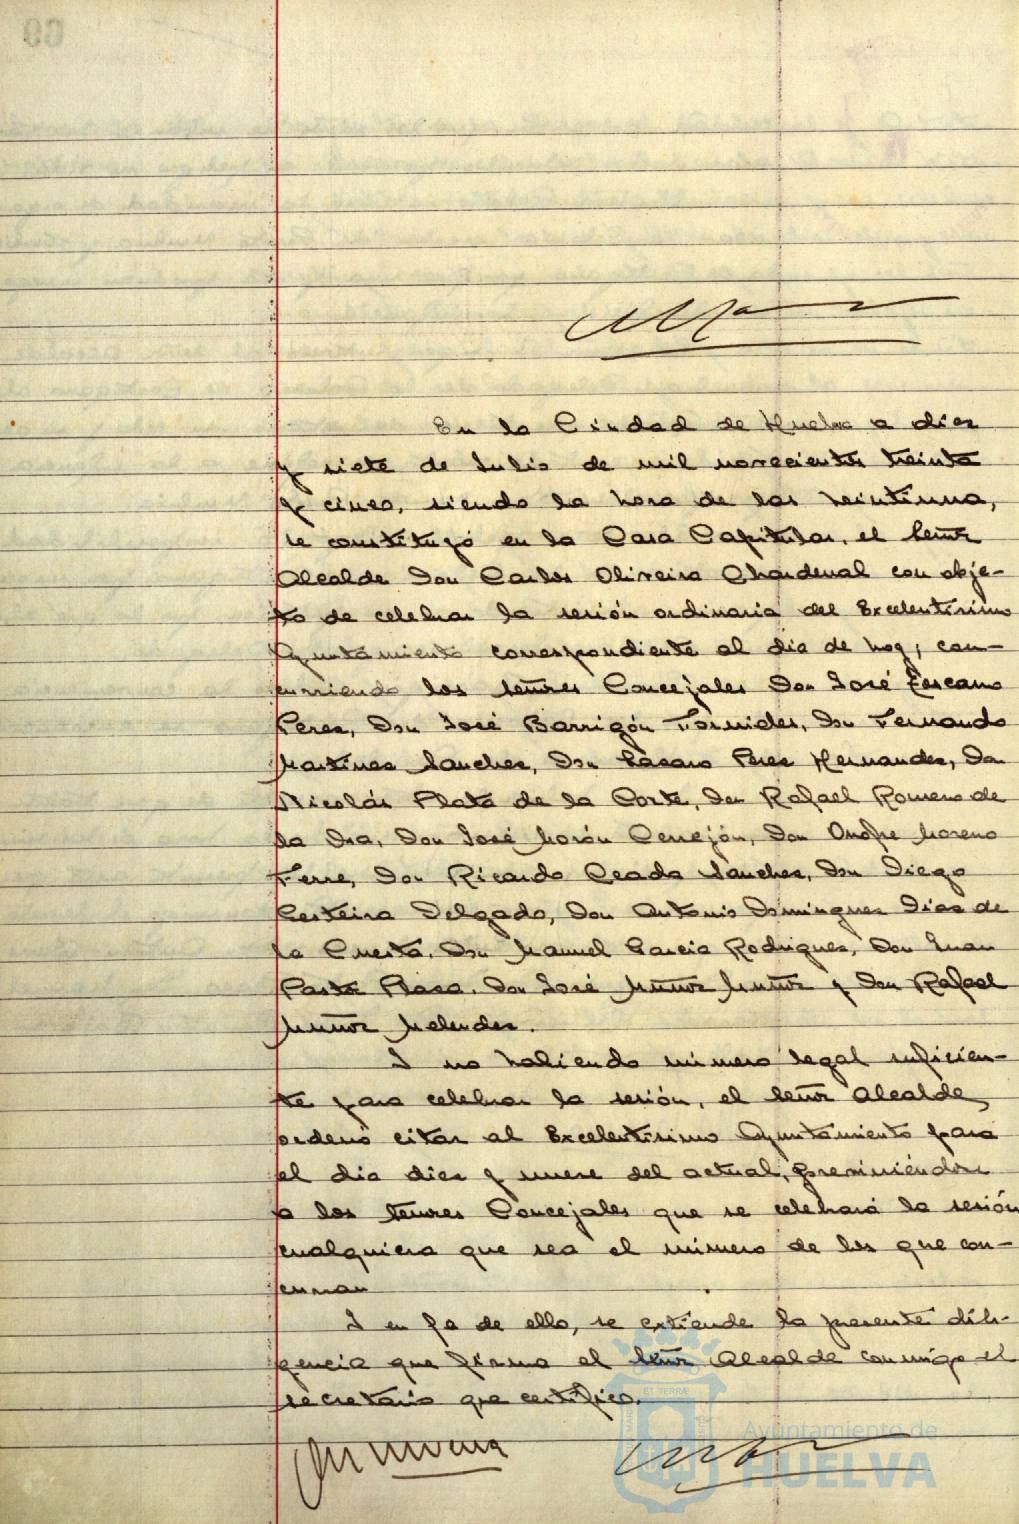 En la Ciudad de Huelva a diez
y siete de Julio de mil novecientos treinta
y cinco, siendo la hora de las veintiuna,
se constituyó en la Casa Capitular, el Señor
Alcalde Don Carlos Oliveira Chardenal con obje-
to de celebrar la sesión ordinaria del Excelentísimo
Ayuntamiento correspondiente al día de hoy, con-
curriendo los señores Concejales Don José Lescano
Perez, Don José Barrigón Fornieles, Don Fernando
Martinez Sanchez, Don Lázaro Perez Hernandez, Don
Nicolás Plata de la Corte, Don Rafael Romero de
la Osa, Don José Morón Cerrejón, Don Onofre Moreno
Ferre, Don Ricardo Ceada Sanchez, Don Diego
Delgado, Don Antonio Dominguez Diaz de
la Cuesta, Don Manuel Garcia Rodriguez, Don Juan
Plaza, Don José Muñoz Muñoz y Don Rafael
Muñoz Melendez.
I no habiendo número legal suficien-
te para celebrar la sesión, el Señor Alcalde,
ordenó citar al Excelentísimo Ayuntamiento para
el día diez y nueve del actual, previniéndose
a los señores Concejales que se celebrará la sesión
cualquiera que sea el número de los que con-
curran
I en fe de ello, se extiende la presente dili-
gencia que firma el Señor Alcalde conmigo el
secretario que certifico.
Ayuntamiento de
HUELVA